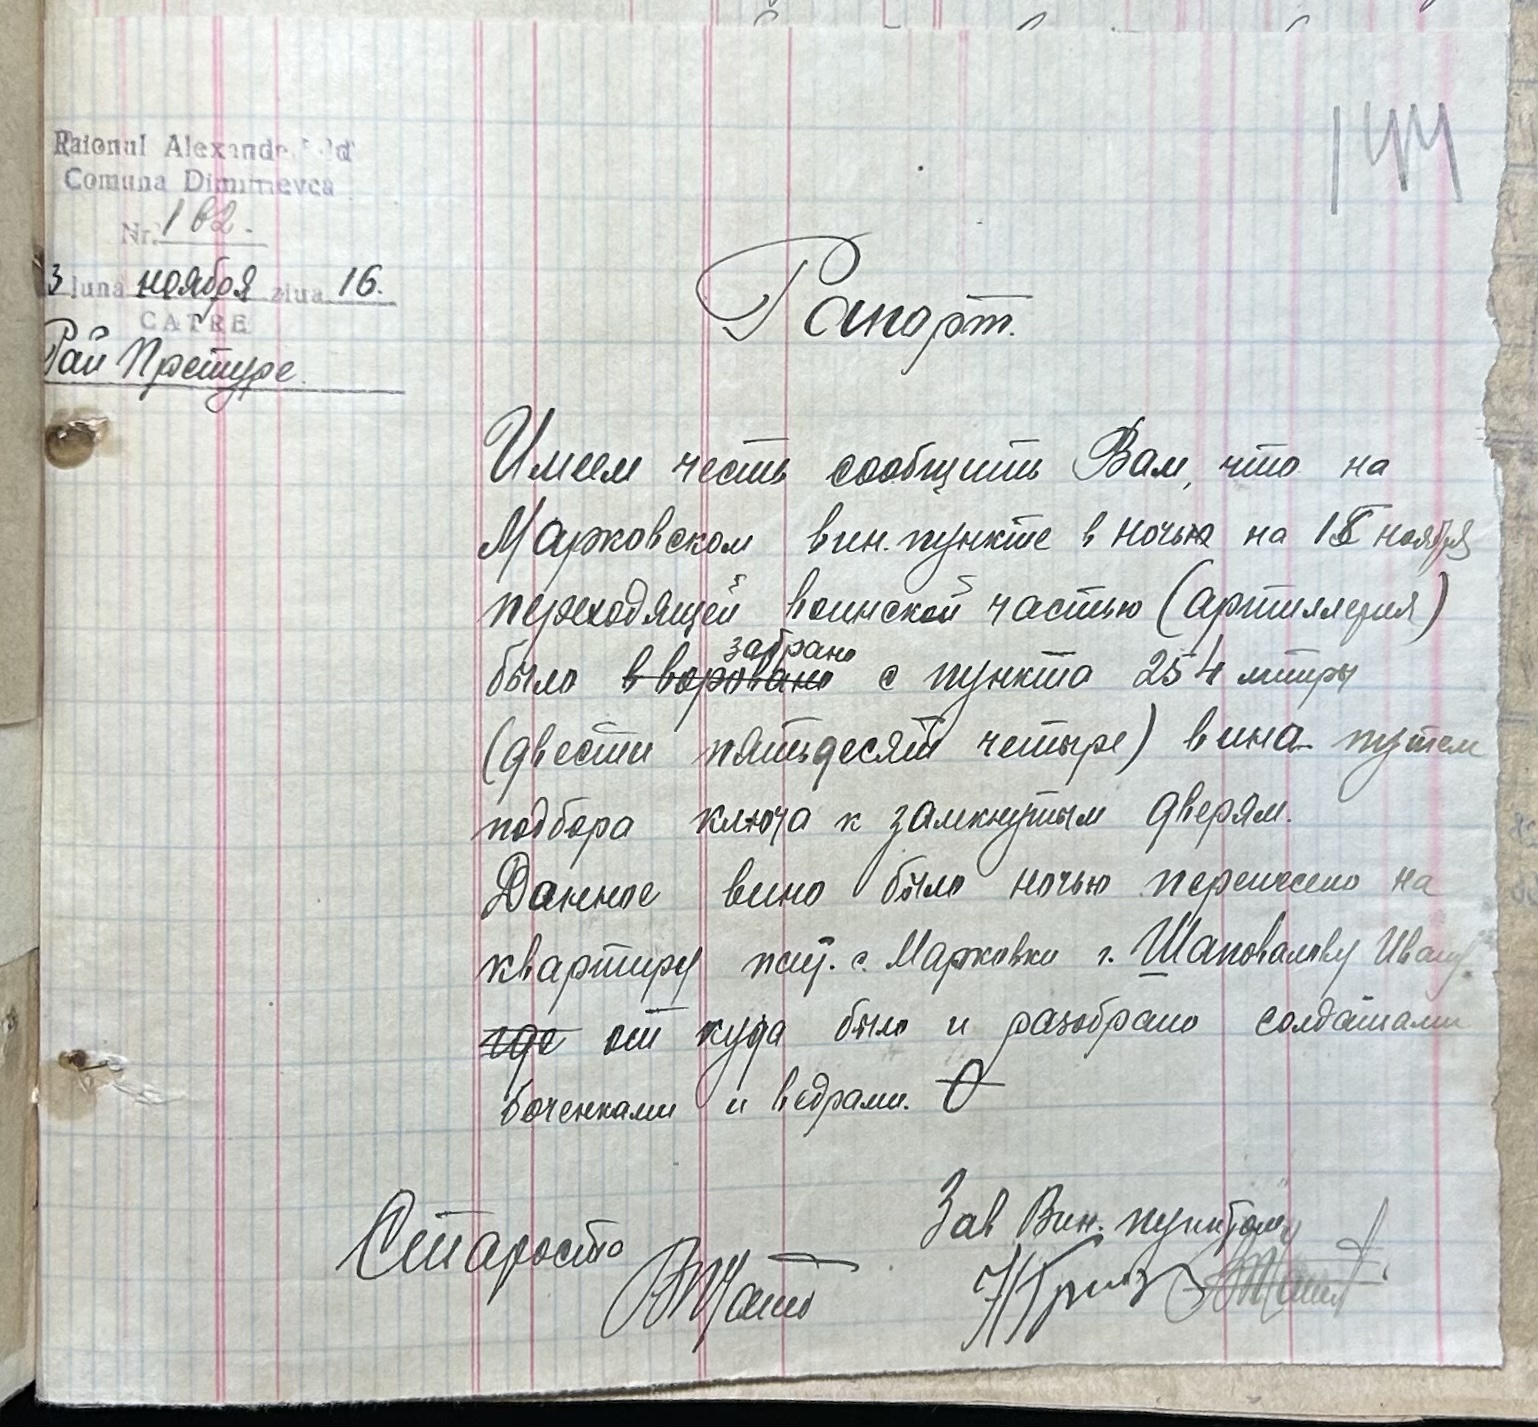 144
Raionul Alexanderfeld
Comuna Dimitrievca
Nr. 162.
3 luna ноября ziua 16.
CATRE
Рай Претуре.
Рапорт.
Имеем честь сообщить Вам, что на
Марковском вин. пункте в ночью на 15 ноября
переходящей воинской частью (артиллерия)
было вворовано забрано с пункта 254 литры
(двести пятьдесят четыре) вина путем
подбора ключа к замкнутым дверям.
Данное вино было ночью перенесено на
квартиру жит. с. Марковки г. Шаповалову Ивану
где от куда было и разобрано солдатами
боченками и ведрами.
Староста
Зав Вин. пунктом